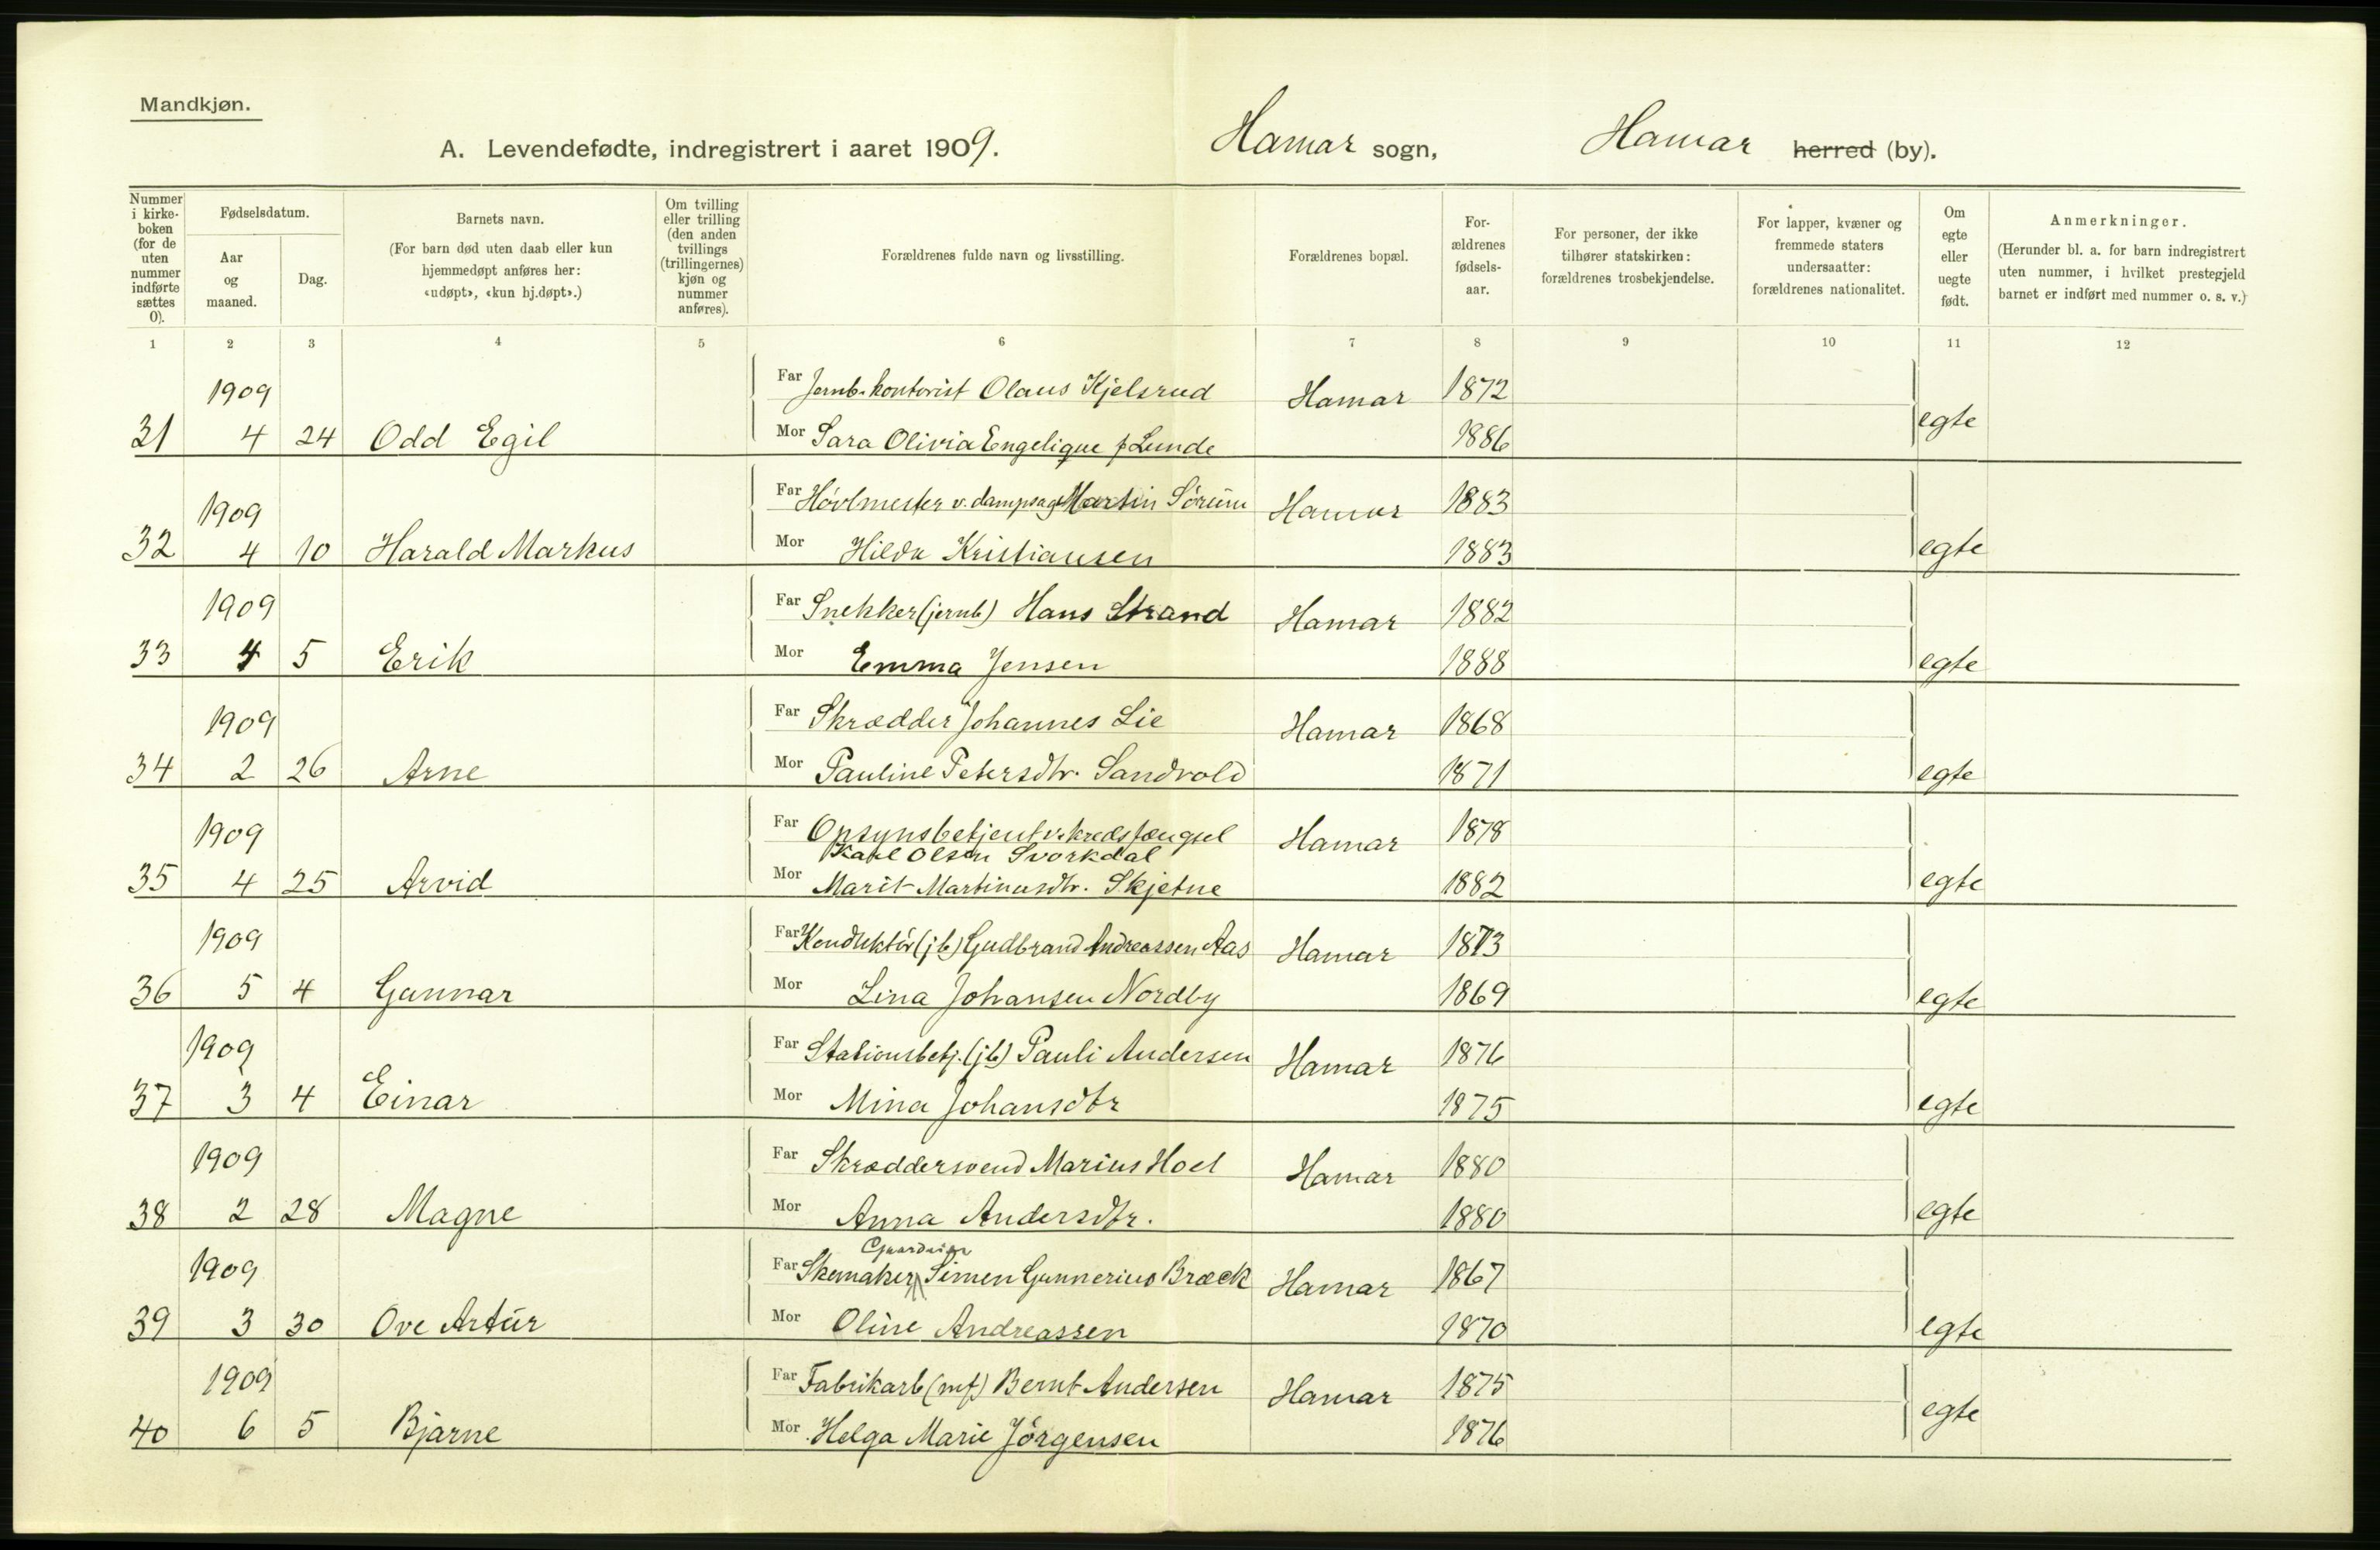 Mandkjøn.
A. Levendefødte, indregistrert i aaret 1909. Hamar sogn, Hamar herred (by).
Nummer i kirke-boken (for de uten nummer indførte sættes 0).
Fødselsdatum.
Aar og maaned.
Dag.
Barnets navn.
(For barn død uten daab eller kun hjemmedøpt anføres her: «udøpt», «kun hj.døpt».)
Om tvilling eller trilling (den anden tvillings (trillingernes) kjøn og nummer anføres).
Forældrenes fulde navn og livsstilling.
Forældrenes bopæl.
For-ældrenes fødsels-aar.
For personer, der ikke tilhører statskirken: forældrenes trosbekjendelse.
For lapper, kvæner og fremmede staters undersaatter: forældrenes nationalitet.
Om egte eller uegte født.
Anmerkninger.
(Herunder bl. a. for barn indregistrert uten nummer, i hvilket prestegjeld barnet er indført med nummer o. s. v.)
1 2 3 4 5 6 7 8 9 10 11 12
1909 Far Jernb.kontorist Olaus Kjelsrud Hamar 1872
31 4 24 Odd Egil Mor Sara Olivia Engelique f Lunde 1886 egte
1909 Far Høvlmester v. dampsag Martin Sörum Hamar 1883
32 4 10 Harald Markus Mor Hilda Kristiansen 1883 egte
1909 Far Snekker (jernb) Hans Strand Hamar 1882
33 4 5 Erik Mor Emma Jensen 1888 egte
1909 Far Skrædder Johannes Lie Hamar 1868
34 2 26 Arne Mor Pauline Petersdtr. Sandvold 1871 egte
1909 Far Opsynsbetjent v. kredsfængsel Hamar 1878
Karl Olsen Svorkdal
35 4 25 Arvid Mor Marit Martinusdtr. Skjetne 1882 egte
1909 Far Konduktör (jb) Gudbrand Andreassen Aas Hamar 1873
36 5 4 Gunnar Mor Lina Johansen Nordby 1869 egte
1909 Far Stationsbetj. (jb) Pauli Andersen Hamar 1876
37 3 4 Einar Mor Mina Johansdtr 1875 egte
1909 Far Skræddersvend Marius Hoel Hamar 1880
38 2 28 Magne Mor Anna Andersdtr. 1880 egte
1909 Far Skomaker Simen Gunnerius Bræck Hamar 1867
39 3 30 Ove Artür Mor Oline Andreassen 1870 egte
1909 Far Fabrikarb (mf) Bernt Andersen Hamar 1875
40 6 5 Bjarne Mor Helga Marie Jörgensen 1876 egte